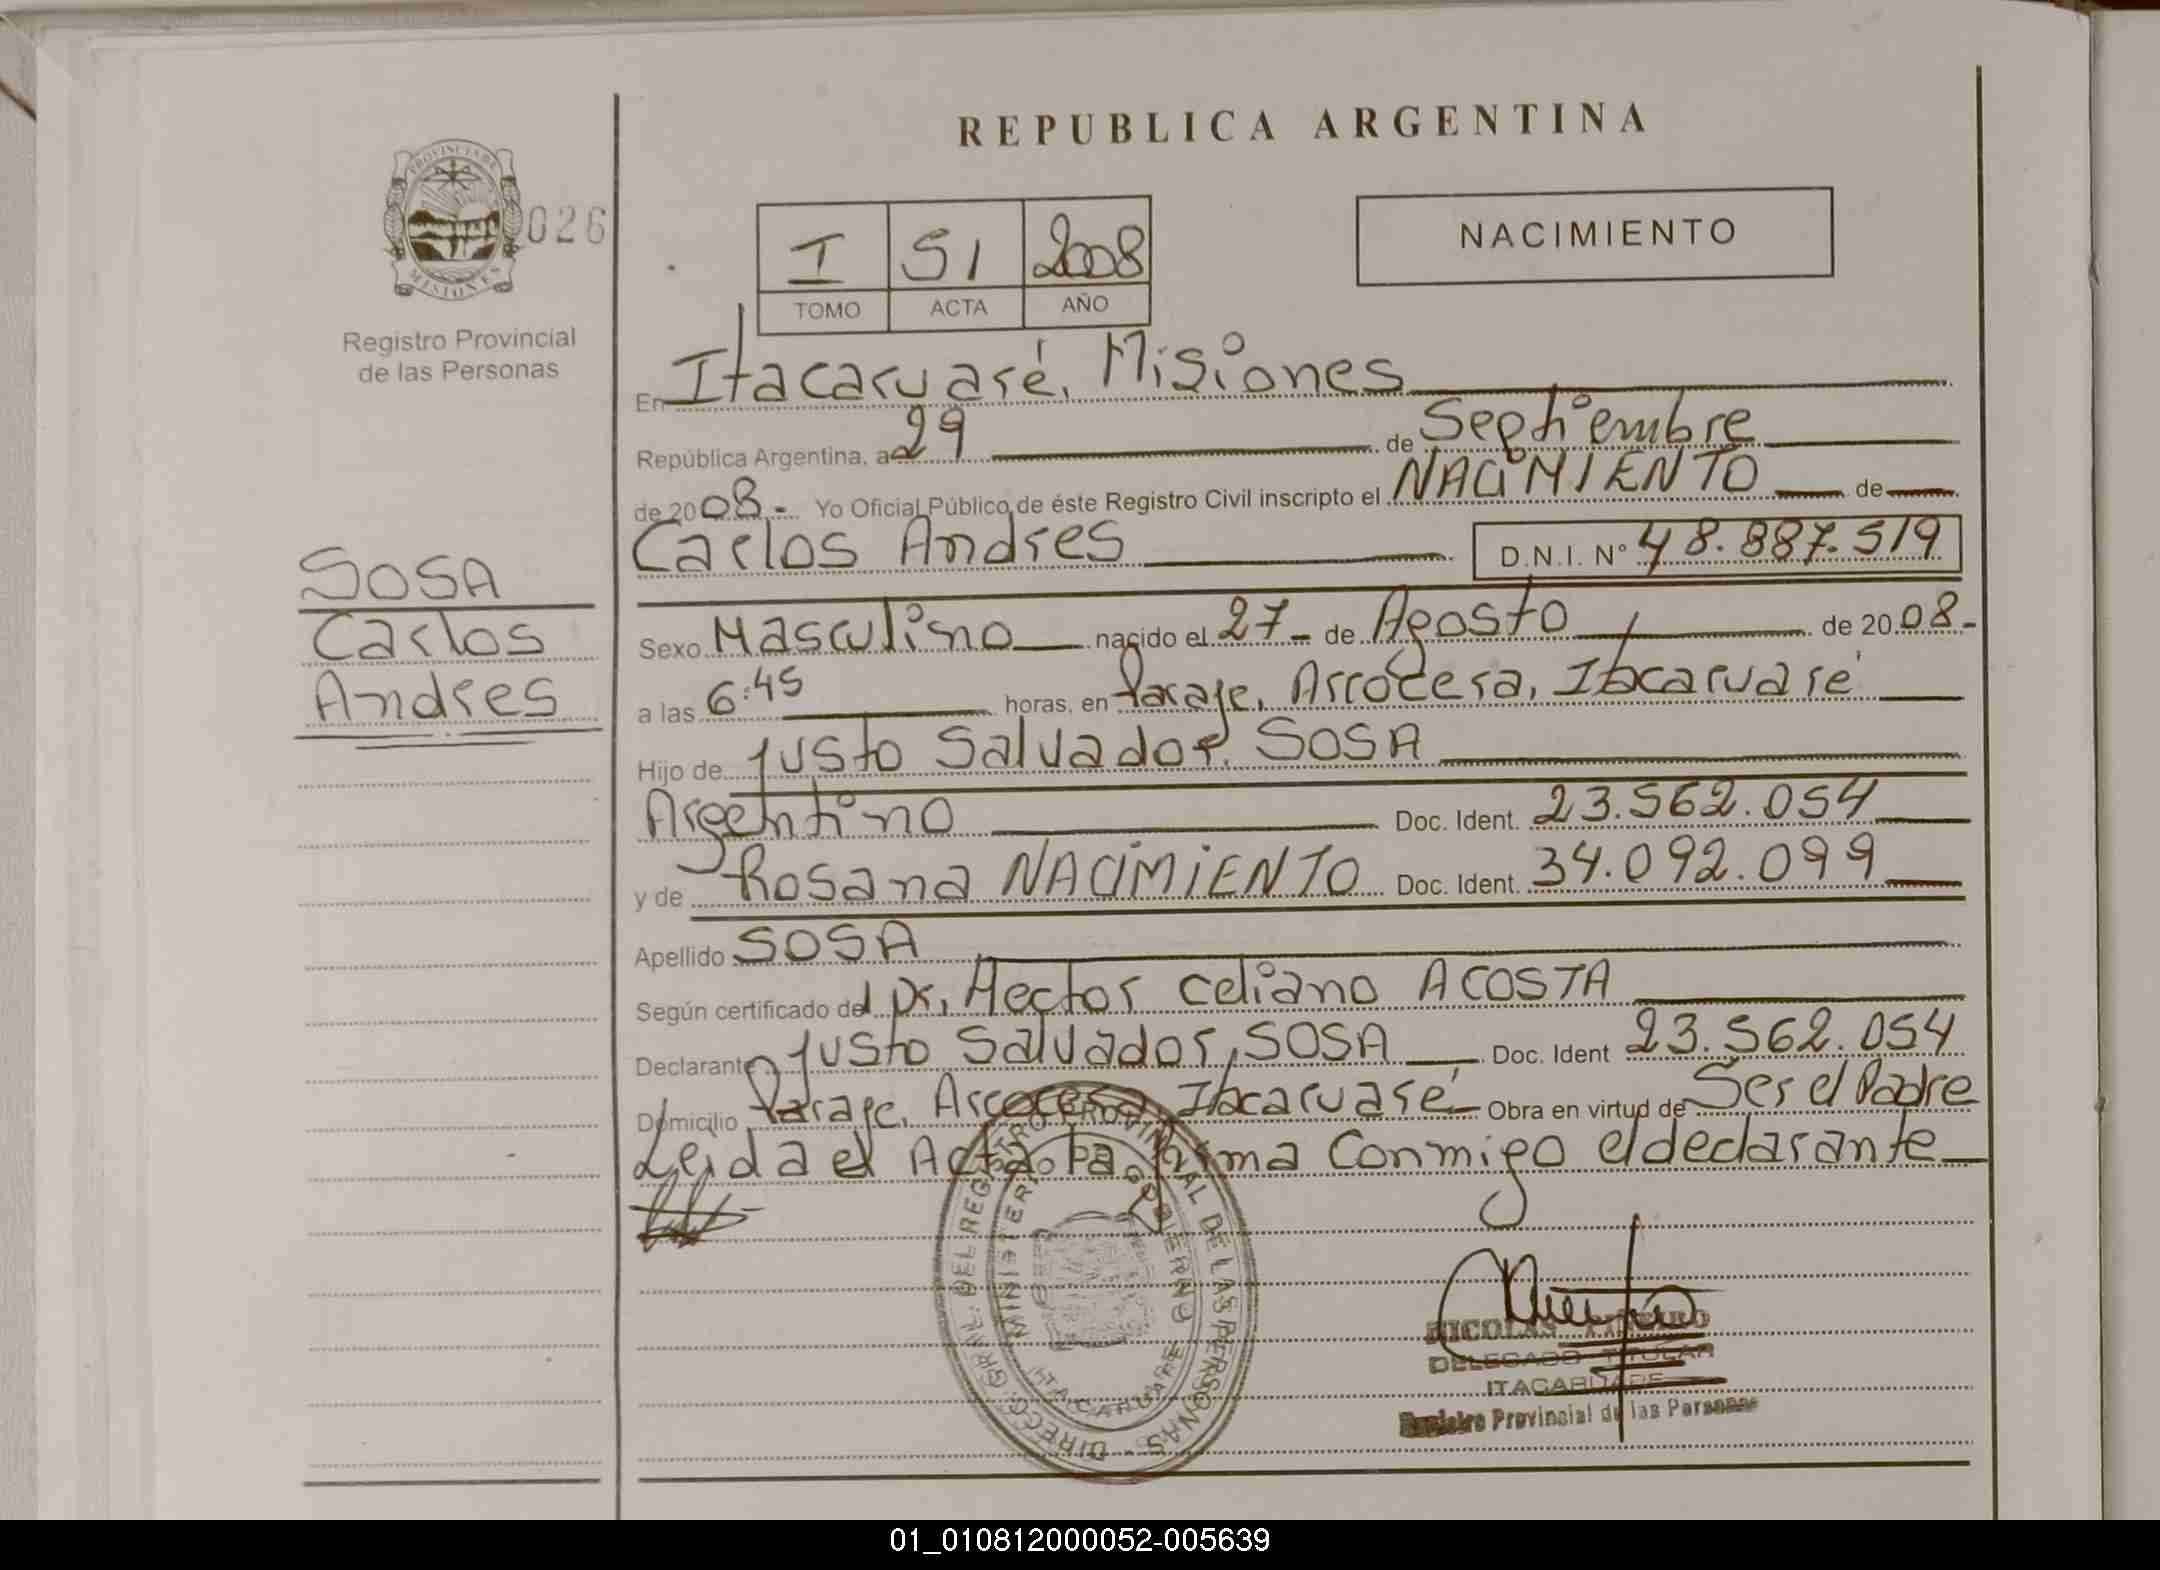 REPUBLICA ARGENTINA
PROVINCIA DE
MISIONES
026
Registro Provincial
de las Personas
I 51 2008
TOMO ACTA AÑO
NACIMIENTO
SOSA
Carlos
Andres
En Itacaruaré, Misiones
República Argentina, a 29 de Septiembre
de 2008.- Yo Oficial Público de éste Registro Civil inscripto el NACIMIENTO de
Carlos Andres D.N.I. N° 48.887.519
Sexo Masculino nacido el 27 - de Agosto de 2008.-
a las 6:45 horas, en Paraje, Arrocera, Itacaruaré
Hijo de Justo Salvador, SOSA
Argentino Doc. Ident. 23.562.054
y de Rosana NACIMIENTO Doc. Ident. 34.092.099
Apellido SOSA
Según certificado del Dr, Hector Celiano ACOSTA
Declarante Justo Salvador, SOSA Doc. Ident 23.562.054
Domicilio Paraje, Arrocera, Itacaruaré Obra en virtud de Ser el Padre
Leida el Acta la firma Conmigo el declarante
DIRECC. GRAL. DEL REGISTRO PROVINCIAL DE LAS PERSONAS
MINISTERIO DE GOBIERNO
ITACARUARE
NICOLAS
DELEGADO TITULAR
ITACARUARE
Registro Provincial de las Personas
01_010812000052-005639